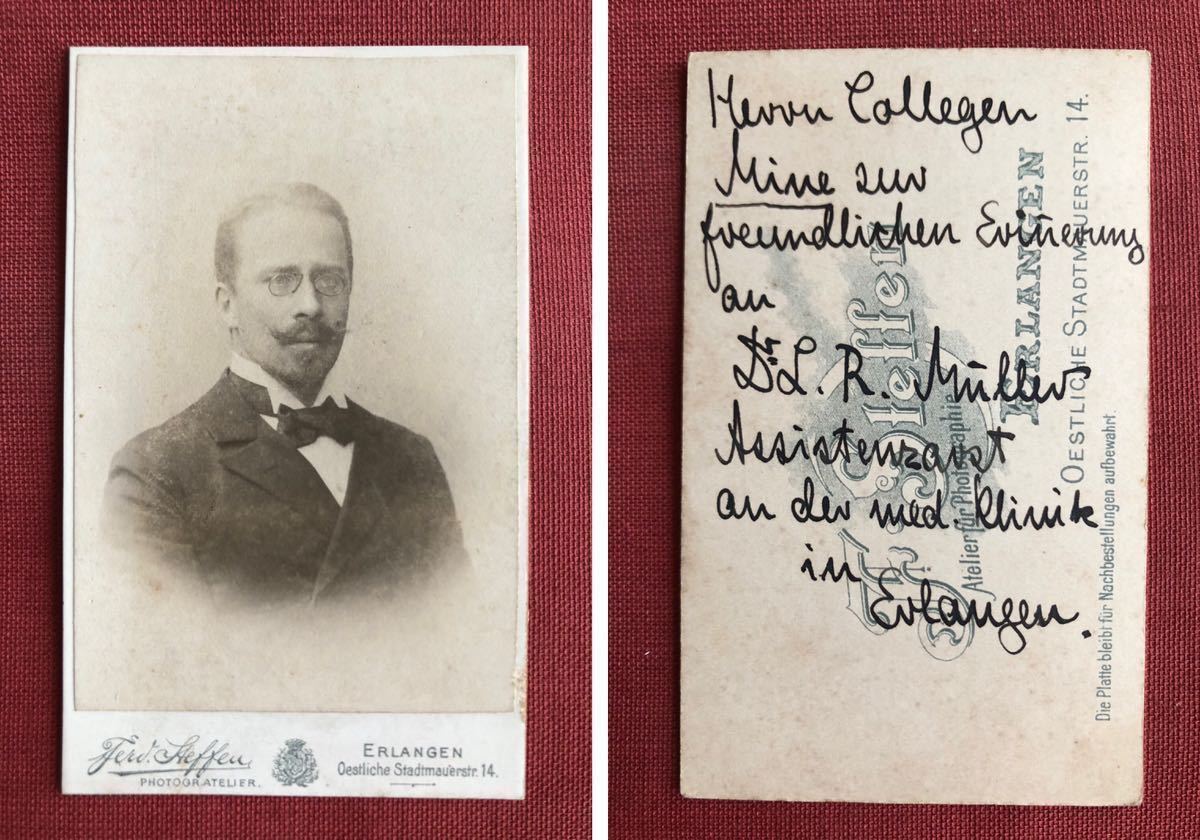 Ferd. Steffen,
PHOTOGR. ATELIER.
ERLANGEN
Oestliche Stadtmauerstr. 14.
Herrn Collegen
Mine zur
freundlichen Erinerung
an
Dr. L. R. Müller
Assistenzarzt
an der med. Klinik
in
Erlangen.
F. Steffen
Atelier für Photographie
ERLANGEN
OESTLICHE STADTMAUERSTR. 14.
Die Platte bleibt für Nachbestellungen aufbewahrt.